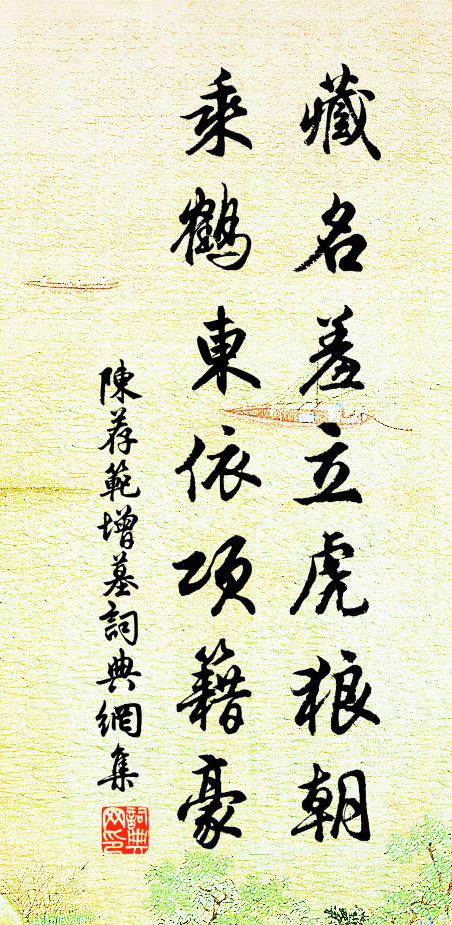 藏名羞立虎狼朝
乘鶴東依項籍豪
陳荐範增墓詞典網集
詞典網印